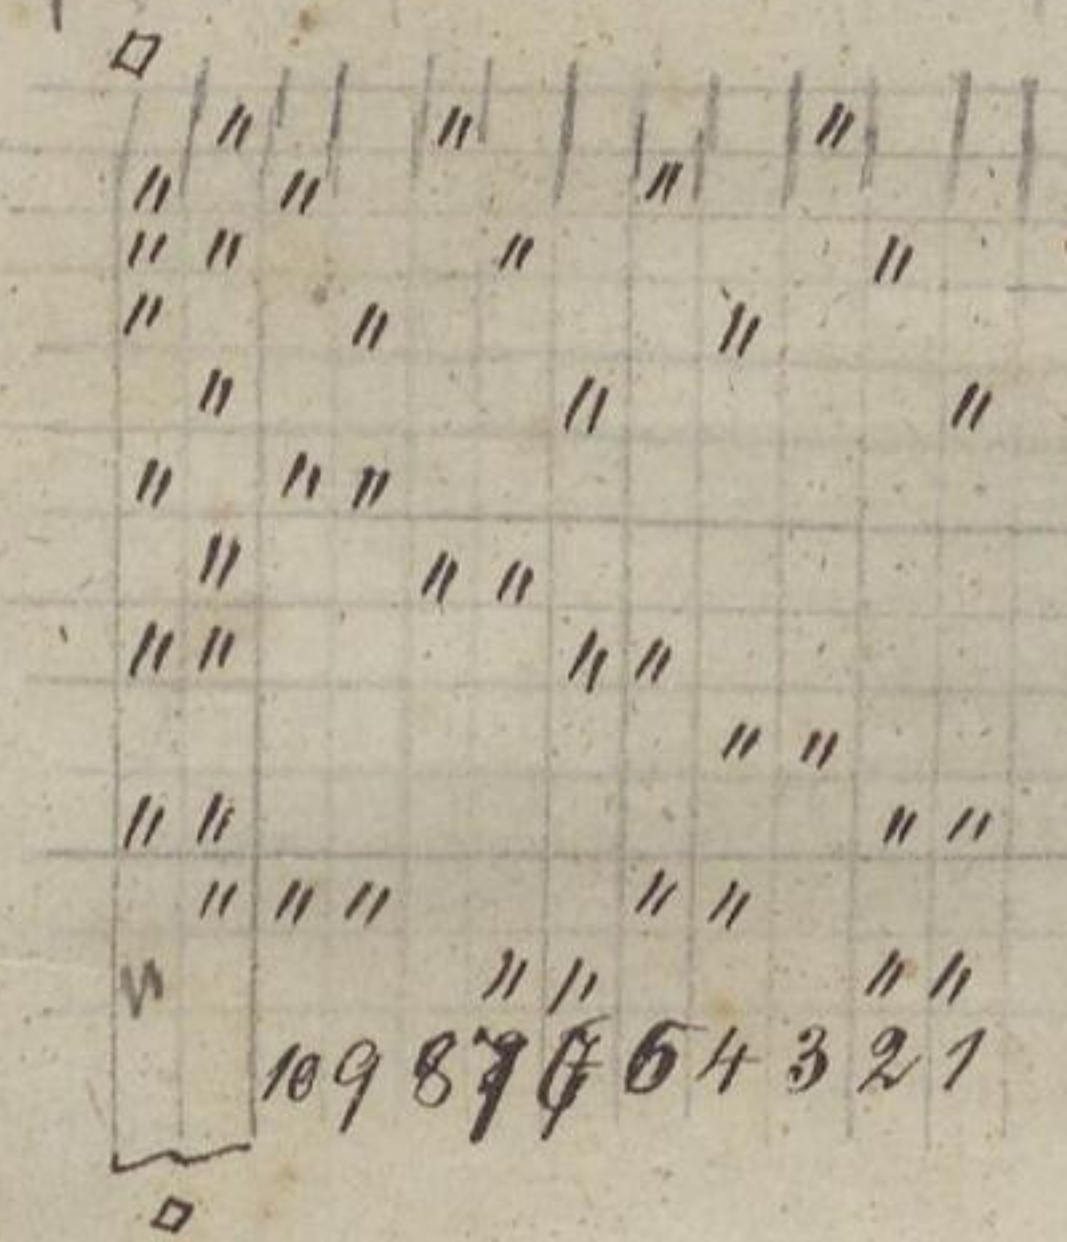 ◇
〃 〃 〃
〃 〃 〃
〃 〃 〃 〃
〃 〃 〃
〃 〃 〃
〃 〃 〃
〃 〃 〃
〃 〃 〃 〃
〃 〃
〃 〃 〃 〃
〃 〃 〃 〃 〃
〃 〃 〃 〃 〃
10 9 8 7 6 5 4 3 2 1
◇